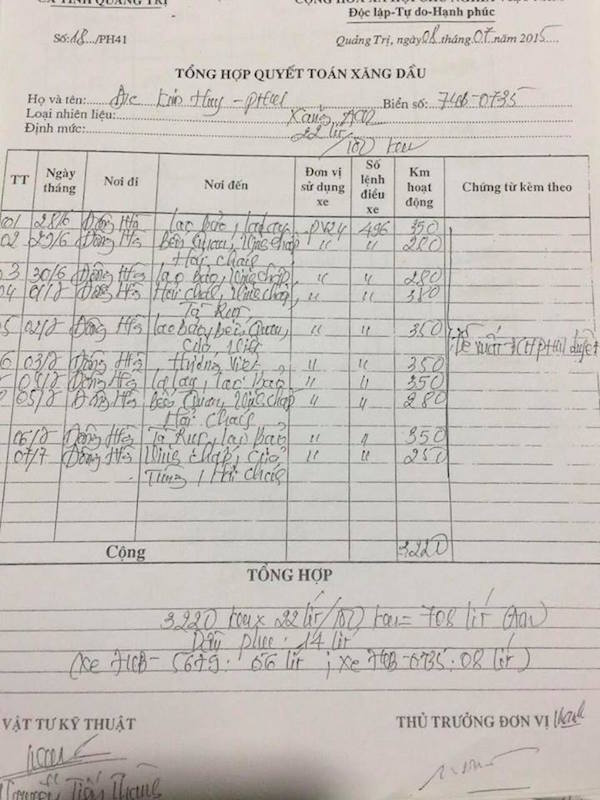 CA TỈNH QUẢNG TRỊ
Độc lập-Tự do-Hạnh phúc
Số: 18 .../PH41
Quảng Trị, ngày 08 .tháng 07 .năm 2015
TỔNG HỢP QUYẾT TOÁN XĂNG DẦU
Họ và tên: Đ/c Huy - PH41 Biển số: 74B-0735
Loại nhiên liệu: Xăng A92
Định mức: 22 lít
/100 km
TT Ngày tháng Nơi đi Nơi đến Đơn vị sử dụng xe Số lệnh điều xe Km hoạt động Chứng từ kèm theo
01 28/6 Đông Hà Lao Bảo, La Lay PV24 496 350
02 29/6 Đông Hà Bến Quan, Vĩnh Chấp " " 280
Hải Chánh
3 30/6 Đông Hà Lao Bảo, Vĩnh Chấp, " " 280
04 01/7 Đông Hà Hải Chánh, Vĩnh Chấp, " " 380
Tà Rụt
5 02/7 Đông Hà Lao Bảo, Bến Quan, " " 350
Cửa Việt
Đề xuất duyệt
6 03/7 Đông Hà Hướng Việt, " " 350
Đông Hà La Lay, Lao Bảo " " 350
05/7 Đông Hà Bến Quan, Vĩnh Chấp " " 280
Hải Chánh
06/7 Đông Hà Tà Rụt, Lao Bảo " " 350
07/7 Đông Hà Vĩnh Chấp, Cửa " " 250
Tùng, Hải Chánh
Cộng 3220
TỔNG HỢP
3220 km x 22 lít/100 km = 708 lít (A92)
Dầu phụ: 14 lít
(Xe 74B-5679: 06 lít ; xe 74B-0735: 08 lít)
VẬT TƯ KỸ THUẬT
THỦ TRƯỞNG ĐƠN VỊ